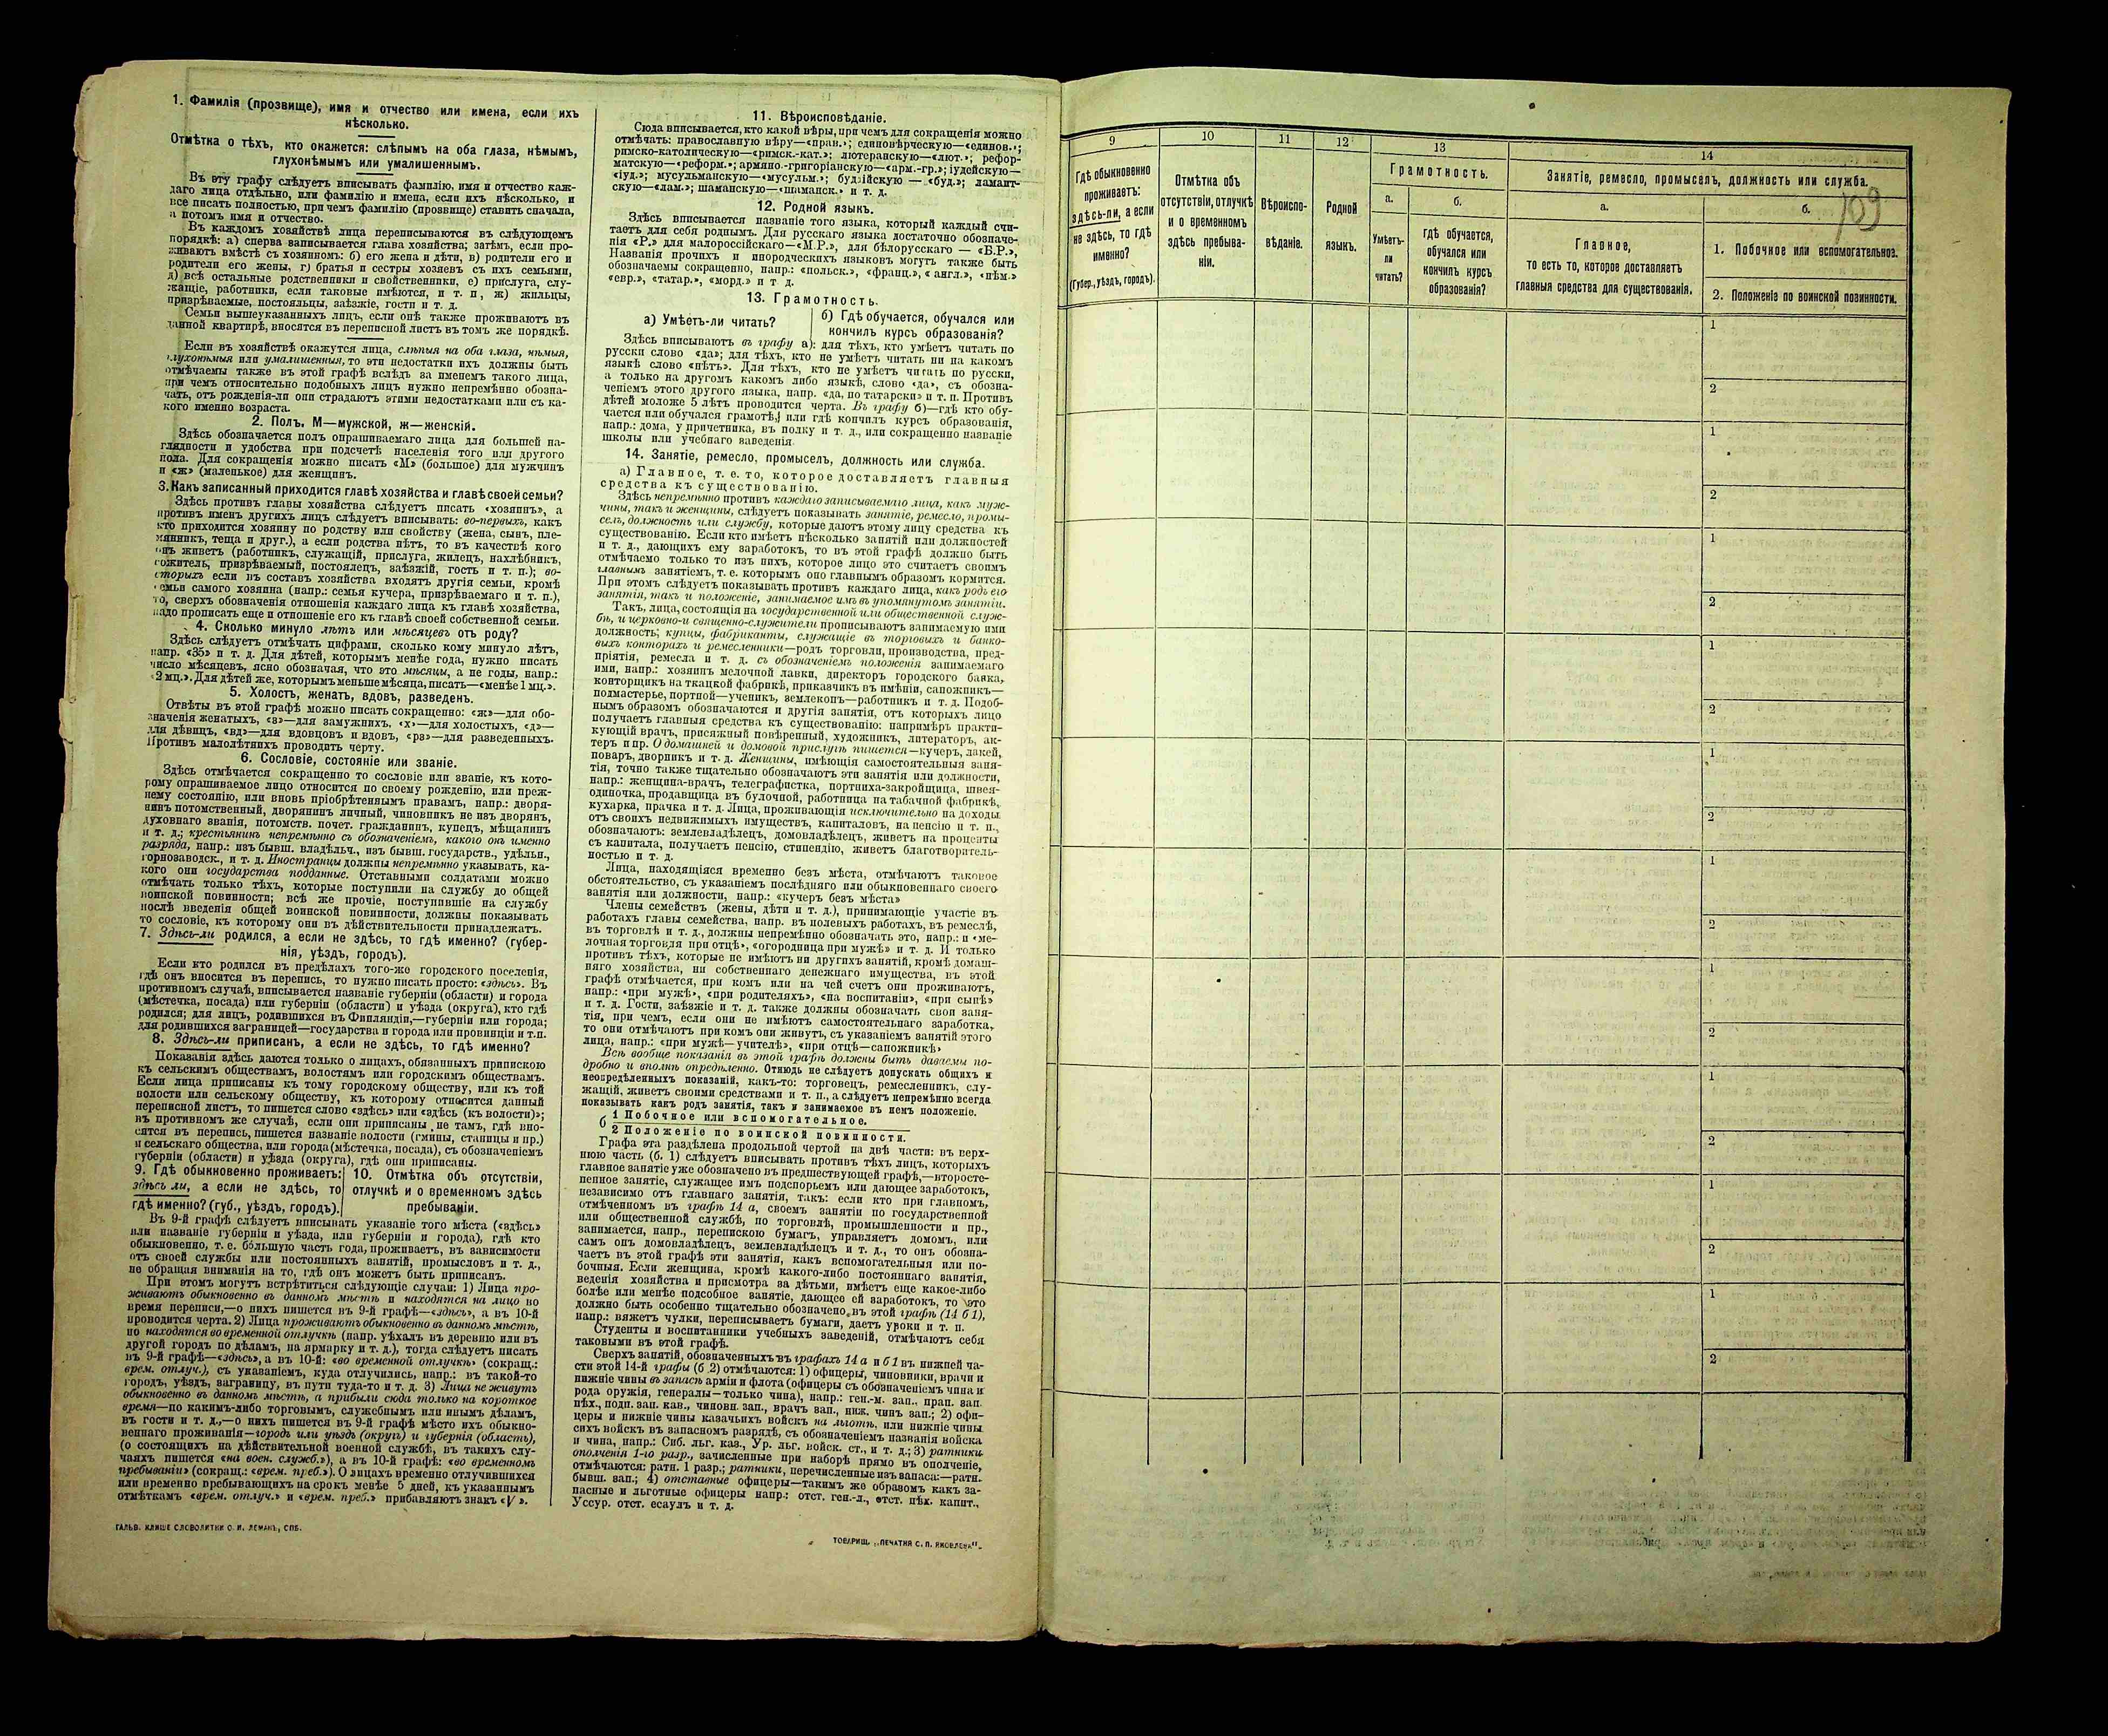 1. Фамилія (прозвище), имя и отчество или имена, если ихъ
нѣсколько.
Отмѣтка о тѣхъ, кто окажется: слѣпымъ на оба глаза, нѣмымъ,
глухонѣмымъ или умалишеннымъ.
Въ эту графу слѣдуетъ вписывать фамилію, имя и отчество каж-
даго лица отдѣльно, или фамилію и имена, если ихъ нѣсколько, и
все писать полностью, при чемъ фамилію (прозвище) ставить сначала,
а потомъ имя и отчество.
Въ каждомъ хозяйствѣ лица переписываются въ слѣдующемъ
порядкѣ: а) сперва записывается глава хозяйства; затѣмъ, если про-
живаютъ вмѣстѣ съ хозяиномъ: б) его жена и дѣти, в) родители его и
родители его жены, г) братья и сестры хозяевъ съ ихъ семьями,
д) всѣ остальные родственники и свойственники, е) прислуга, слу-
жащіе, работники, если таковые имѣются, и т. п., ж) жильцы,
призрѣваемые, постояльцы, заѣзжіе, гости и т. д.
Семьи вышеуказанныхъ лицъ, если онѣ также проживаютъ въ
данной квартирѣ, вносятся въ переписной листъ въ томъ же порядкѣ.
Если въ хозяйствѣ окажутся лица, слѣпыя на оба глаза, нѣмыя,
глухонѣмыя или умалишенныя, то эти недостатки ихъ должны быть
отмѣчаемы также въ этой графѣ вслѣдъ за именемъ такого лица,
при чемъ относительно подобныхъ лицъ нужно непремѣнно обозна-
чать, отъ рожденія-ли они страдаютъ этими недостатками или съ ка-
кого именно возраста.
2. Полъ. М—мужской, ж—женскій.
Здѣсь обозначается полъ опрашиваемаго лица для большей на-
глядности и удобства при подсчетѣ населенія того или другого
пола. Для сокращенія можно писать «М» (большое) для мужчинъ
и «ж» (маленькое) для женщинъ.
3. Какъ записанный приходится главѣ хозяйства и главѣ своей семьи?
Здѣсь противъ главы хозяйства слѣдуетъ писать «хозяинъ», а
противъ именъ другихъ лицъ слѣдуетъ вписывать: во-первыхъ, какъ
кто приходится хозяину по родству или свойству (жена, сынъ, пле-
мянникъ, теща и друг.), а если родства нѣтъ, то въ качествѣ кого
онъ живетъ (работникъ, служащій, прислуга, жилецъ, нахлѣбникъ,
сожитель, призрѣваемый, постоялецъ, заѣзжій, гость и т. п.); во-
вторыхъ если въ составъ хозяйства входятъ другія семьи, кромѣ
семьи самого хозяина (напр.: семья кучера, призрѣваемаго и т. п.),
то, сверхъ обозначенія отношенія каждаго лица къ главѣ хозяйства,
надо прописать еще и отношеніе его къ главѣ своей собственной семьи.
4. Сколько минуло лѣтъ или мѣсяцевъ отъ роду?
Здѣсь слѣдуетъ отмѣчать цифрами, сколько кому минуло лѣтъ,
напр. «35» и т. д. Для дѣтей, которымъ менѣе года, нужно писать
число мѣсяцевъ, ясно обозначая, что это мѣсяцы, а не годы, напр.:
«2 мц.». Для дѣтей же, которымъ меньше мѣсяца, писать—«менѣе 1 мц.».
5. Холостъ, женатъ, вдовъ, разведенъ.
Отвѣты въ этой графѣ можно писать сокращенно: «ж»—для обо-
значенія женатыхъ, «з»—для замужнихъ, «х»—для холостыхъ, «д»—
для дѣвицъ, «вд»—для вдовцовъ и вдовъ, «рз»—для разведенныхъ.
Противъ малолѣтнихъ проводить черту.
6. Сословіе, состояніе или званіе.
Здѣсь отмѣчается сокращенно то сословіе или званіе, къ кото-
рому опрашиваемое лицо относится по своему рожденію, или преж-
нему состоянію, или вновь пріобрѣтеннымъ правамъ, напр.: дворя-
нинъ потомственный, дворянинъ личный, чиновникъ не изъ дворянъ,
духовнаго званія, потомств. почет. гражданинъ, купецъ, мѣщанинъ
и т. д.; крестьянинъ непремѣнно съ обозначеніемъ, какого онъ именно
разряда, напр.: изъ бывш. владѣльч., изъ бывш. государств., удѣльн.,
горнозаводск., и т. д. Иностранцы должны непремѣнно указывать, ка-
кого они государства подданные. Отставными солдатами можно
отмѣчать только тѣхъ, которые поступили на службу до общей
воинской повинности; всѣ же прочіе, поступившіе на службу
послѣ введенія общей воинской повинности, должны показывать
то сословіе, къ которому они въ дѣйствительности принадлежатъ.
7. Здѣсь-ли родился, а если не здѣсь, то гдѣ именно? (губер-
нія, уѣздъ, городъ).
Если кто родился въ предѣлахъ того-же городского поселенія,
гдѣ онъ вносится въ перепись, то нужно писать просто: «здѣсь». Въ
противномъ случаѣ, вписывается названіе губерніи (области) и города
(мѣстечка, посада) или губерніи (области) и уѣзда (округа), кто гдѣ
родился; для лицъ, родившихся въ Финляндіи,—губерніи или города;
для родившихся заграницей—государства и города или провинціи и т.п.
8. Здѣсь-ли приписанъ, а если не здѣсь, то гдѣ именно?
Показанія здѣсь даются только о лицахъ, обязанныхъ припискою
къ сельскимъ обществамъ, волостямъ или городскимъ обществамъ.
Если лица приписаны къ тому городскому обществу, или къ той
волости или сельскому обществу, къ которому относится данный
переписной листъ, то пишется слово «здѣсь» или «здѣсь (къ волости)»;
въ противномъ же случаѣ, если они приписаны не тамъ, гдѣ вно-
сятся въ перепись, пишется названіе волости (гмины, станицы и пр.)
и сельскаго общества, или города (мѣстечка, посада), съ обозначеніемъ
губерніи (области) и уѣзда (округа), гдѣ они приписаны.
9. Гдѣ обыкновенно проживаетъ:
здѣсь ли, а если не здѣсь, то
гдѣ именно? (губ., уѣздъ, городъ).
10. Отмѣтка объ отсутствіи,
отлучкѣ и о временномъ здѣсь
пребываніи.
Въ 9-й графѣ слѣдуетъ вписывать указаніе того мѣста («здѣсь»
или названіе губерніи и уѣзда, или губерніи и города), гдѣ кто
обыкновенно, т. е. бо́льшую часть года, проживаетъ, въ зависимости
отъ своей службы или постоянныхъ занятій, промысловъ и т. д.,
не обращая вниманія на то, гдѣ онъ можетъ быть приписанъ.
При этомъ могутъ встрѣтиться слѣдующіе случаи: 1) Лица про-
живаютъ обыкновенно въ данномъ мѣстѣ и находятся на лицо во
время переписи,—о нихъ пишется въ 9-й графѣ—«здѣсь», а въ 10-й
проводится черта. 2) Лица проживаютъ обыкновенно въ данномъ мѣстѣ,
но находятся во временной отлучкѣ (напр. уѣхалъ въ деревню или въ
другой городъ по дѣламъ, на ярмарку и т. д.), тогда слѣдуетъ писать
въ 9-й графѣ—«здѣсь», а въ 10-й: «во временной отлучкѣ» (сокращ.:
врем. отлуч.), съ указаніемъ, куда отлучились, напр.: въ такой-то
городъ, уѣздъ, заграницу, въ пути туда-то и т. д. 3) Лица не живутъ
обыкновенно въ данномъ мѣстѣ, а прибыли сюда только на короткое
время—по какимъ-либо торговымъ, служебнымъ или инымъ дѣламъ,
въ гости и т. д.,—о нихъ пишется въ 9-й графѣ мѣсто ихъ обыкно-
веннаго проживанія—городъ или уѣздъ (округъ) и губернія (область),
(о состоящихъ на дѣйствительной военной службѣ, въ такихъ слу-
чаяхъ пишется «на воен. служб.»), а въ 10-й графѣ: «во временномъ
пребываніи» (сокращ.: «врем. преб.»). О лицахъ временно отлучившихся
или временно пребывающихъ на срокъ менѣе 5 дней, къ указаннымъ
отмѣткамъ «врем. отлуч.» и «врем. преб.» прибавляютъ знакъ «V».
ГАЛЬВ. КЛИШЕ СЛОВОЛИТНИ О. И. ЛЕМАНЪ, СПБ.
11. Вѣроисповѣданіе.
Сюда вписывается, кто какой вѣры, при чемъ для сокращенія можно
отмѣчать: православную вѣру—«прав.»; единовѣрческую—«единов.»;
римско-католическую—«римск.-кат.»; лютеранскую—«лют.»; рефор-
матскую—«реформ.»; армяно.-григоріанскую—«арм.-гр.»; іудейскую—
«іуд.»; мусульманскую—«мусульм.»; буддійскую — «буд.»; ламаит-
скую—«лам.»; шаманскую—«шаманск.» и т. д.
12. Родной языкъ.
Здѣсь вписывается названіе того языка, который каждый счи-
таетъ для себя роднымъ. Для русскаго языка достаточно обозначе-
нія «Р.» для малороссійскаго—«М.Р.», для бѣлорусскаго — «Б.Р.»,
Названія прочихъ и инородческихъ языковъ могутъ также быть
обозначаемы сокращенно, напр.: «польск.», «франц.», «англ.», «нѣм.»
«евр.», «татар.», «морд.» и т д.
13. Грамотность.
а) Умѣетъ-ли читать?
б) Гдѣ обучается, обучался или
кончилъ курсъ образованія?
Здѣсь вписываютъ въ графу а): для тѣхъ, кто умѣетъ читать по
русски слово «да»; для тѣхъ, кто не умѣетъ читать ни на какомъ
языкѣ слово «нѣтъ». Для тѣхъ, кто не умѣетъ читать по русски,
а только на другомъ какомъ либо языкѣ, слово «да», съ обозна-
ченіемъ этого другого языка, напр. «да, по татарски» и т. п. Противъ
дѣтей моложе 5 лѣтъ проводится черта. Въ графу б)—гдѣ кто обу-
чается или обучался грамотѣ, или гдѣ кончилъ курсъ образованія,
напр.: дома, у причетника, въ полку и т. д., или сокращенно названіе
школы или учебнаго заведенія
14. Занятіе, ремесло, промыселъ, должность или служба.
а) Главное, т. е. то, которое доставляетъ главныя
средства къ существованію.
Здѣсь непремѣнно противъ каждаго записываемаго лица, какъ муж-
чины, такъ и женщины, слѣдуетъ показывать занятіе, ремесло, промы-
селъ, должность или службу, которые даютъ этому лицу средства къ
существованію. Если кто имѣетъ нѣсколько занятій или должностей
и т. д., дающихъ ему заработокъ, то въ этой графѣ должно быть
отмѣчаемо только то изъ нихъ, которое лицо это считаетъ своимъ
главнымъ занятіемъ, т. е. которымъ оно главнымъ образомъ кормится.
При этомъ слѣдуетъ показывать противъ каждаго лица, какъ родъ его
занятія, такъ и положеніе, занимаемое имъ въ упомянутомъ занятіи.
Такъ, лица, состоящія на государственной или общественной служ-
бѣ, и церковно-и священно-служители прописываютъ занимаемую ими
должность; купцы, фабриканты, служащіе въ торговыхъ и банко-
выхъ конторахъ и ремесленники—родъ торговли, производства, пред-
пріятія, ремесла и т. д. съ обозначеніемъ положенія занимаемаго
ими, напр.: хозяинъ мелочной лавки, директоръ городского банка,
конторщикъ на ткацкой фабрикѣ, приказчикъ въ имѣніи, сапожникъ—
подмастерье, портной—ученикъ, землекопъ—работникъ и т. д. Подоб-
нымъ образомъ обозначаются и другія занятія, отъ которыхъ лицо
получаетъ главныя средства къ существованію: напримѣръ практи-
кующій врачъ, присяжный повѣренный, художникъ, литераторъ, ак-
теръ и пр. О домашней и домовой прислугѣ пишется—кучеръ, лакей,
поваръ, дворникъ и т. д. Женщины, имѣющія самостоятельныя заня-
тія, точно также тщательно обозначаютъ эти занятія или должности,
напр.: женщина-врачъ, телеграфистка, портниха-закройщица, швея-
одиночка, продавщица въ булочной, работница на табачной фабрикѣ,
кухарка, прачка и т. д. Лица, проживающія исключительно на доходы
отъ своихъ недвижимыхъ имуществъ, капиталовъ, на пенсію и т. п.,
обозначаютъ: землевладѣлецъ, домовладѣлецъ, живетъ на проценты
съ капитала, получаетъ пенсію, стипендію, живетъ благотворитель-
ностью и т. д.
Лица, находящіяся временно безъ мѣста, отмѣчаютъ таковое
обстоятельство, съ указаніемъ послѣдняго или обыкновеннаго своего
занятія или должности, напр.: «кучеръ безъ мѣста»
Члены семействъ (жены, дѣти и т. д.), принимающіе участіе въ
работахъ главы семейства, напр. въ полевыхъ работахъ, въ ремеслѣ,
въ торговлѣ и т. д., должны непремѣнно обозначать это, напр.: и «ме-
лочная торговля при отцѣ», «огородница при мужѣ» и т. д. И только
противъ тѣхъ, которые не имѣютъ ни другихъ занятій, кромѣ домаш-
няго хозяйства, ни собственнаго денежнаго имущества, въ этой
графѣ отмѣчается, при комъ или на чей счетъ они проживаютъ,
напр.: «при мужѣ», «при родителяхъ», «на воспитаніи», «при сынѣ»
и т. д. Гости, заѣзжіе и т. д. также должны обозначать свои заня-
тія, при чемъ, если они не имѣютъ самостоятельнаго заработка,
то они отмѣчаютъ при комъ они живутъ, съ указаніемъ занятій этого
лица, напр.: «при мужѣ—учителѣ», «при отцѣ—сапожникѣ»
Всѣ вообще показанія въ этой графѣ должны быть даваемы по-
дробно и вполнѣ опредѣленно. Отнюдь не слѣдуетъ допускать общихъ и
неопредѣленныхъ показаній, какъ-то: торговецъ, ремесленникъ, слу-
жащій, живетъ своими средствами и т. п., а слѣдуетъ непремѣнно всегда
показывать какъ родъ занятія, такъ и занимаемое въ немъ положеніе.
б
1 Побочное или вспомогательное.
2 Положеніе по воинской повинности.
Графа эта раздѣлена продольной чертой на двѣ части: въ верх-
нюю часть (б. 1) слѣдуетъ вписывать противъ тѣхъ лицъ, которыхъ
главное занятіе уже обозначено въ предшествующей графѣ,—второсте-
пенное занятіе, служащее имъ подспорьемъ или дающее заработокъ,
независимо отъ главнаго занятія, такъ: если кто при главномъ,
отмѣченномъ въ графѣ 14 а, своемъ занятіи по государственной
или общественной службѣ, по торговлѣ, промышленности и пр.,
занимается, напр., перепискою бумагъ, управляетъ домомъ, или
самъ онъ домовладѣлецъ, землевладѣлецъ и т. д., то онъ обозна-
чаетъ въ этой графѣ эти занятія, какъ вспомогательныя или по-
бочныя. Если женщина, кромѣ какого-либо постояннаго занятія,
веденія хозяйства и присмотра за дѣтьми, имѣетъ еще какое-либо
болѣе или менѣе подсобное занятіе, дающее ей заработокъ, то это
должно быть особенно тщательно обозначено въ этой графѣ (14 б 1),
напр.: вяжетъ чулки, переписываетъ бумаги, даетъ уроки и т. п.
Студенты и воспитанники учебныхъ заведеній, отмѣчаютъ себя
таковыми въ этой графѣ.
Сверхъ занятій, обозначенныхъ въ графахъ 14 а и б 1 въ нижней ча-
сти этой 14-й графы (б 2) отмѣчаются: 1) офицеры, чиновники, врачи и
нижніе чины въ запасѣ арміи и флота (офицеры съ обозначеніемъ чина и
рода оружія, генералы—только чина), напр.: ген.-м. зап., прап. зап.
пѣх., подп. зап. кав., чиновн. зап., врачъ зап., ниж. чинъ зап.; 2) офи-
церы и нижніе чины казачьихъ войскъ на льготѣ, или нижніе чины
сихъ войскъ въ запасномъ разрядѣ, съ обозначеніемъ названія войска
и чина, напр.: Сиб. льг. каз., Ур. льг. войск. ст., и т. д.; 3) ратники
ополченія 1-го разр., зачисленные при наборѣ прямо въ ополченіе,
отмѣчаются: ратн. 1 разр.; ратники, перечисленные изъ запаса:—ратн.
бывш. зап.; 4) отставные офицеры—такимъ же образомъ какъ за-
пасные и льготные офицеры напр.: отст. ген.-л., отст. пѣх. капит.,
Уссур. отст. есаулъ и т. д.
ТОВАРИЩ. „ПЕЧАТНЯ С. П. ЯКОВЛЕВА".
109
9
Гдѣ обыкновенно
проживаетъ:
здѣсь-ли, а если
не здѣсь, то гдѣ
именно?
(Губер., уѣздъ, городъ).
10
Отмѣтка объ
отсутствіи, отлучкѣ
и о временномъ
здѣсь пребыва-
ніи.
11
Вѣроиспо-
вѣданіе.
12
Родной
языкъ.
13
Грамотность.
а.
Умѣетъ-
ли
читать?
б.
гдѣ обучается,
обучался или
кончилъ курсъ
образованія?
14
Занятіе, ремесло, промыселъ, должность или служба.
а.
Главное,
то есть то, которое доставляетъ
главныя средства для существованія.
б.
1. Побочное или вспомогательное.
2. Положеніе по воинской повинности.
1
2
1
2
1
2
1
2
1
2
1
2
1
2
1
2
1
2
1
2